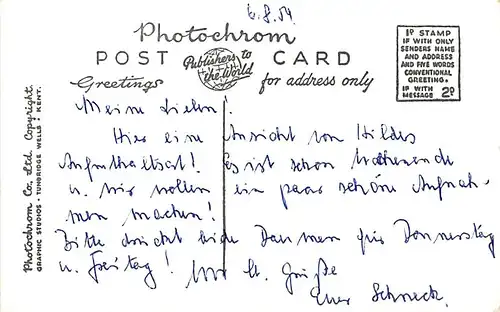 6.8.54
Photochrom
POST CARD
Publishers to the World
Greetings
for address only
1D STAMP
IF WITH ONLY
SENDERS NAME
AND ADDRESS
AND FIVE WORDS
CONVENTIONAL
GREETING.
IF WITH
MESSAGE 2D
Photochrom Co. Ltd. Copyright
GRAPHIC STUDIOS • TUNBRIDGE WELLS • KENT.
Meine Lieben!
Hier eine Ansicht von Hildes
Aufenthaltsort! Es ist schon Wochenende
u. wir wollen ein paar schöne Aufnah-
men machen!
Bitte drückt beide Daumen für Donnerstag
u. Freitag! Grüße
Euer